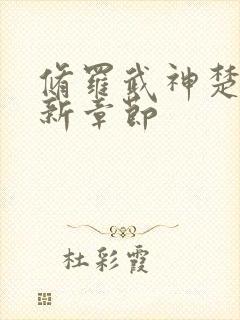 脩羅武神楚
新章節
杜彩霞